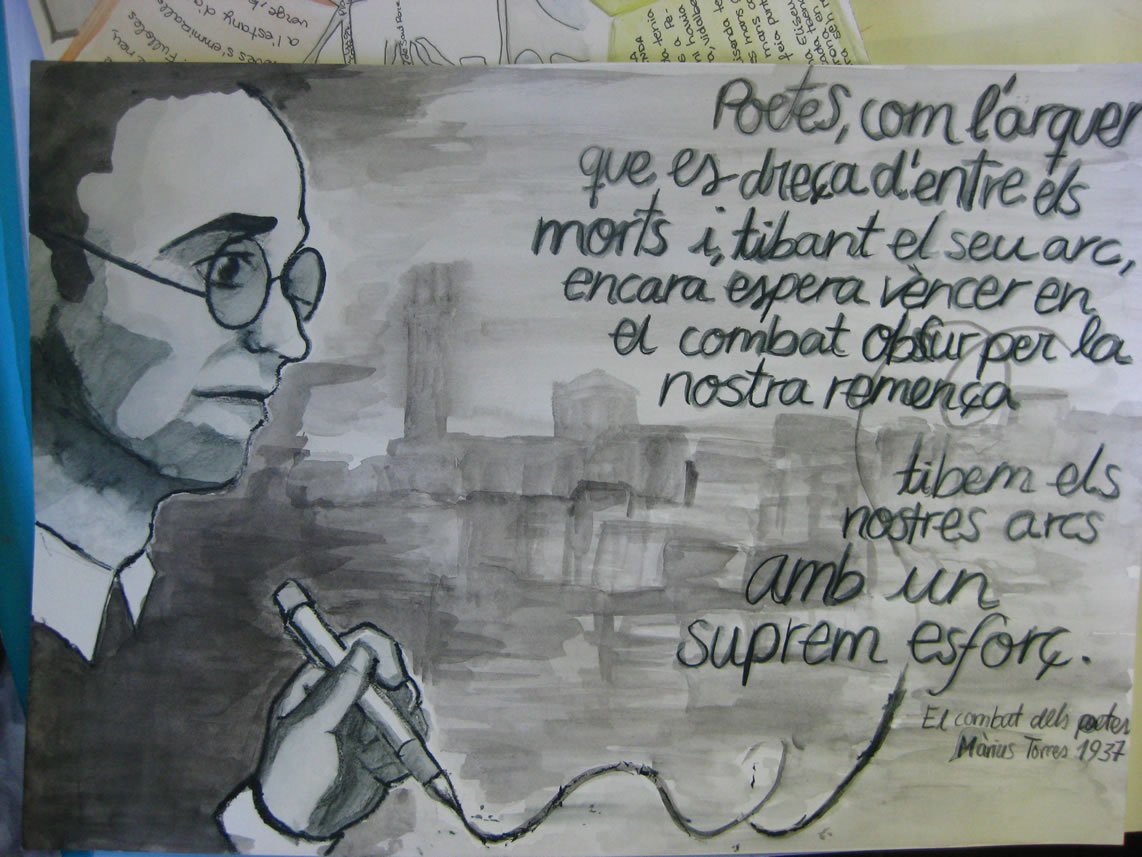 a l'estany d'a
Poetes, com l'arquer
que es dreça d'entre els
morts i, tibant el seu arc,
encara espera vèncer en
el combat obscur per la
nostra romença
tibem els
nostres arcs
amb un
suprem esforç.
El combat dels poetes
Màrius Torres 1937